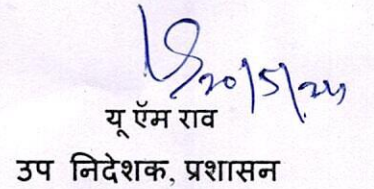 20/5/24
यू ऍम राव
उप निदेशक, प्रशासन